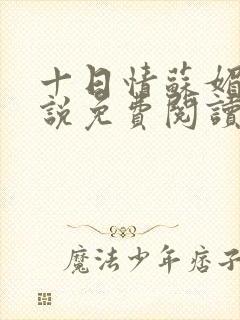 十日情蘇媚
說免費閱讀
魔法少年痞子